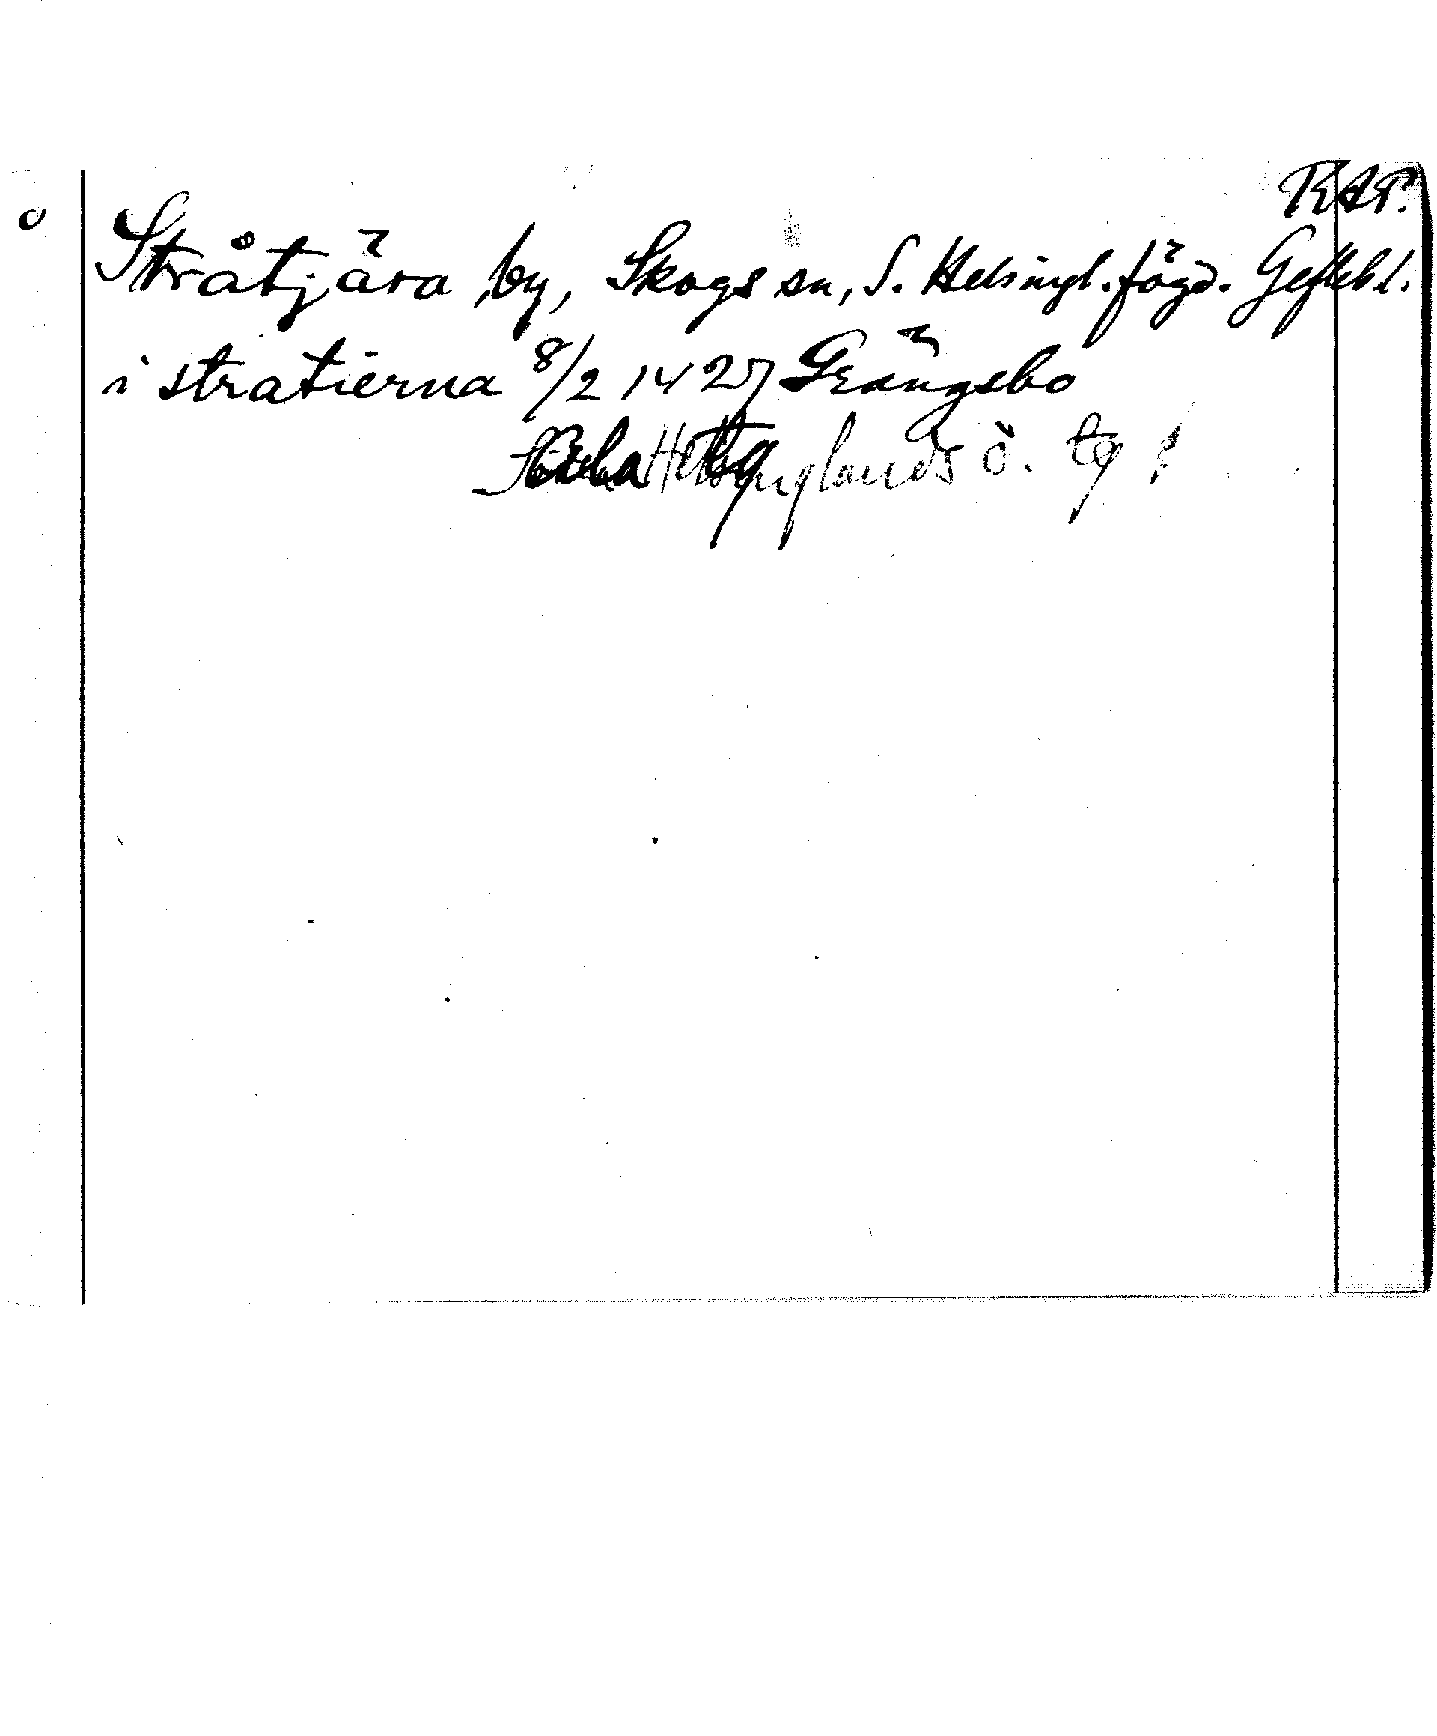 RAP.
Stråtjära by, Skogs sn, S. Helsingl. fögd. Gefleb l.
i stratierna 8/2 1427 Grängsbo
Helsinglands ö. tg!